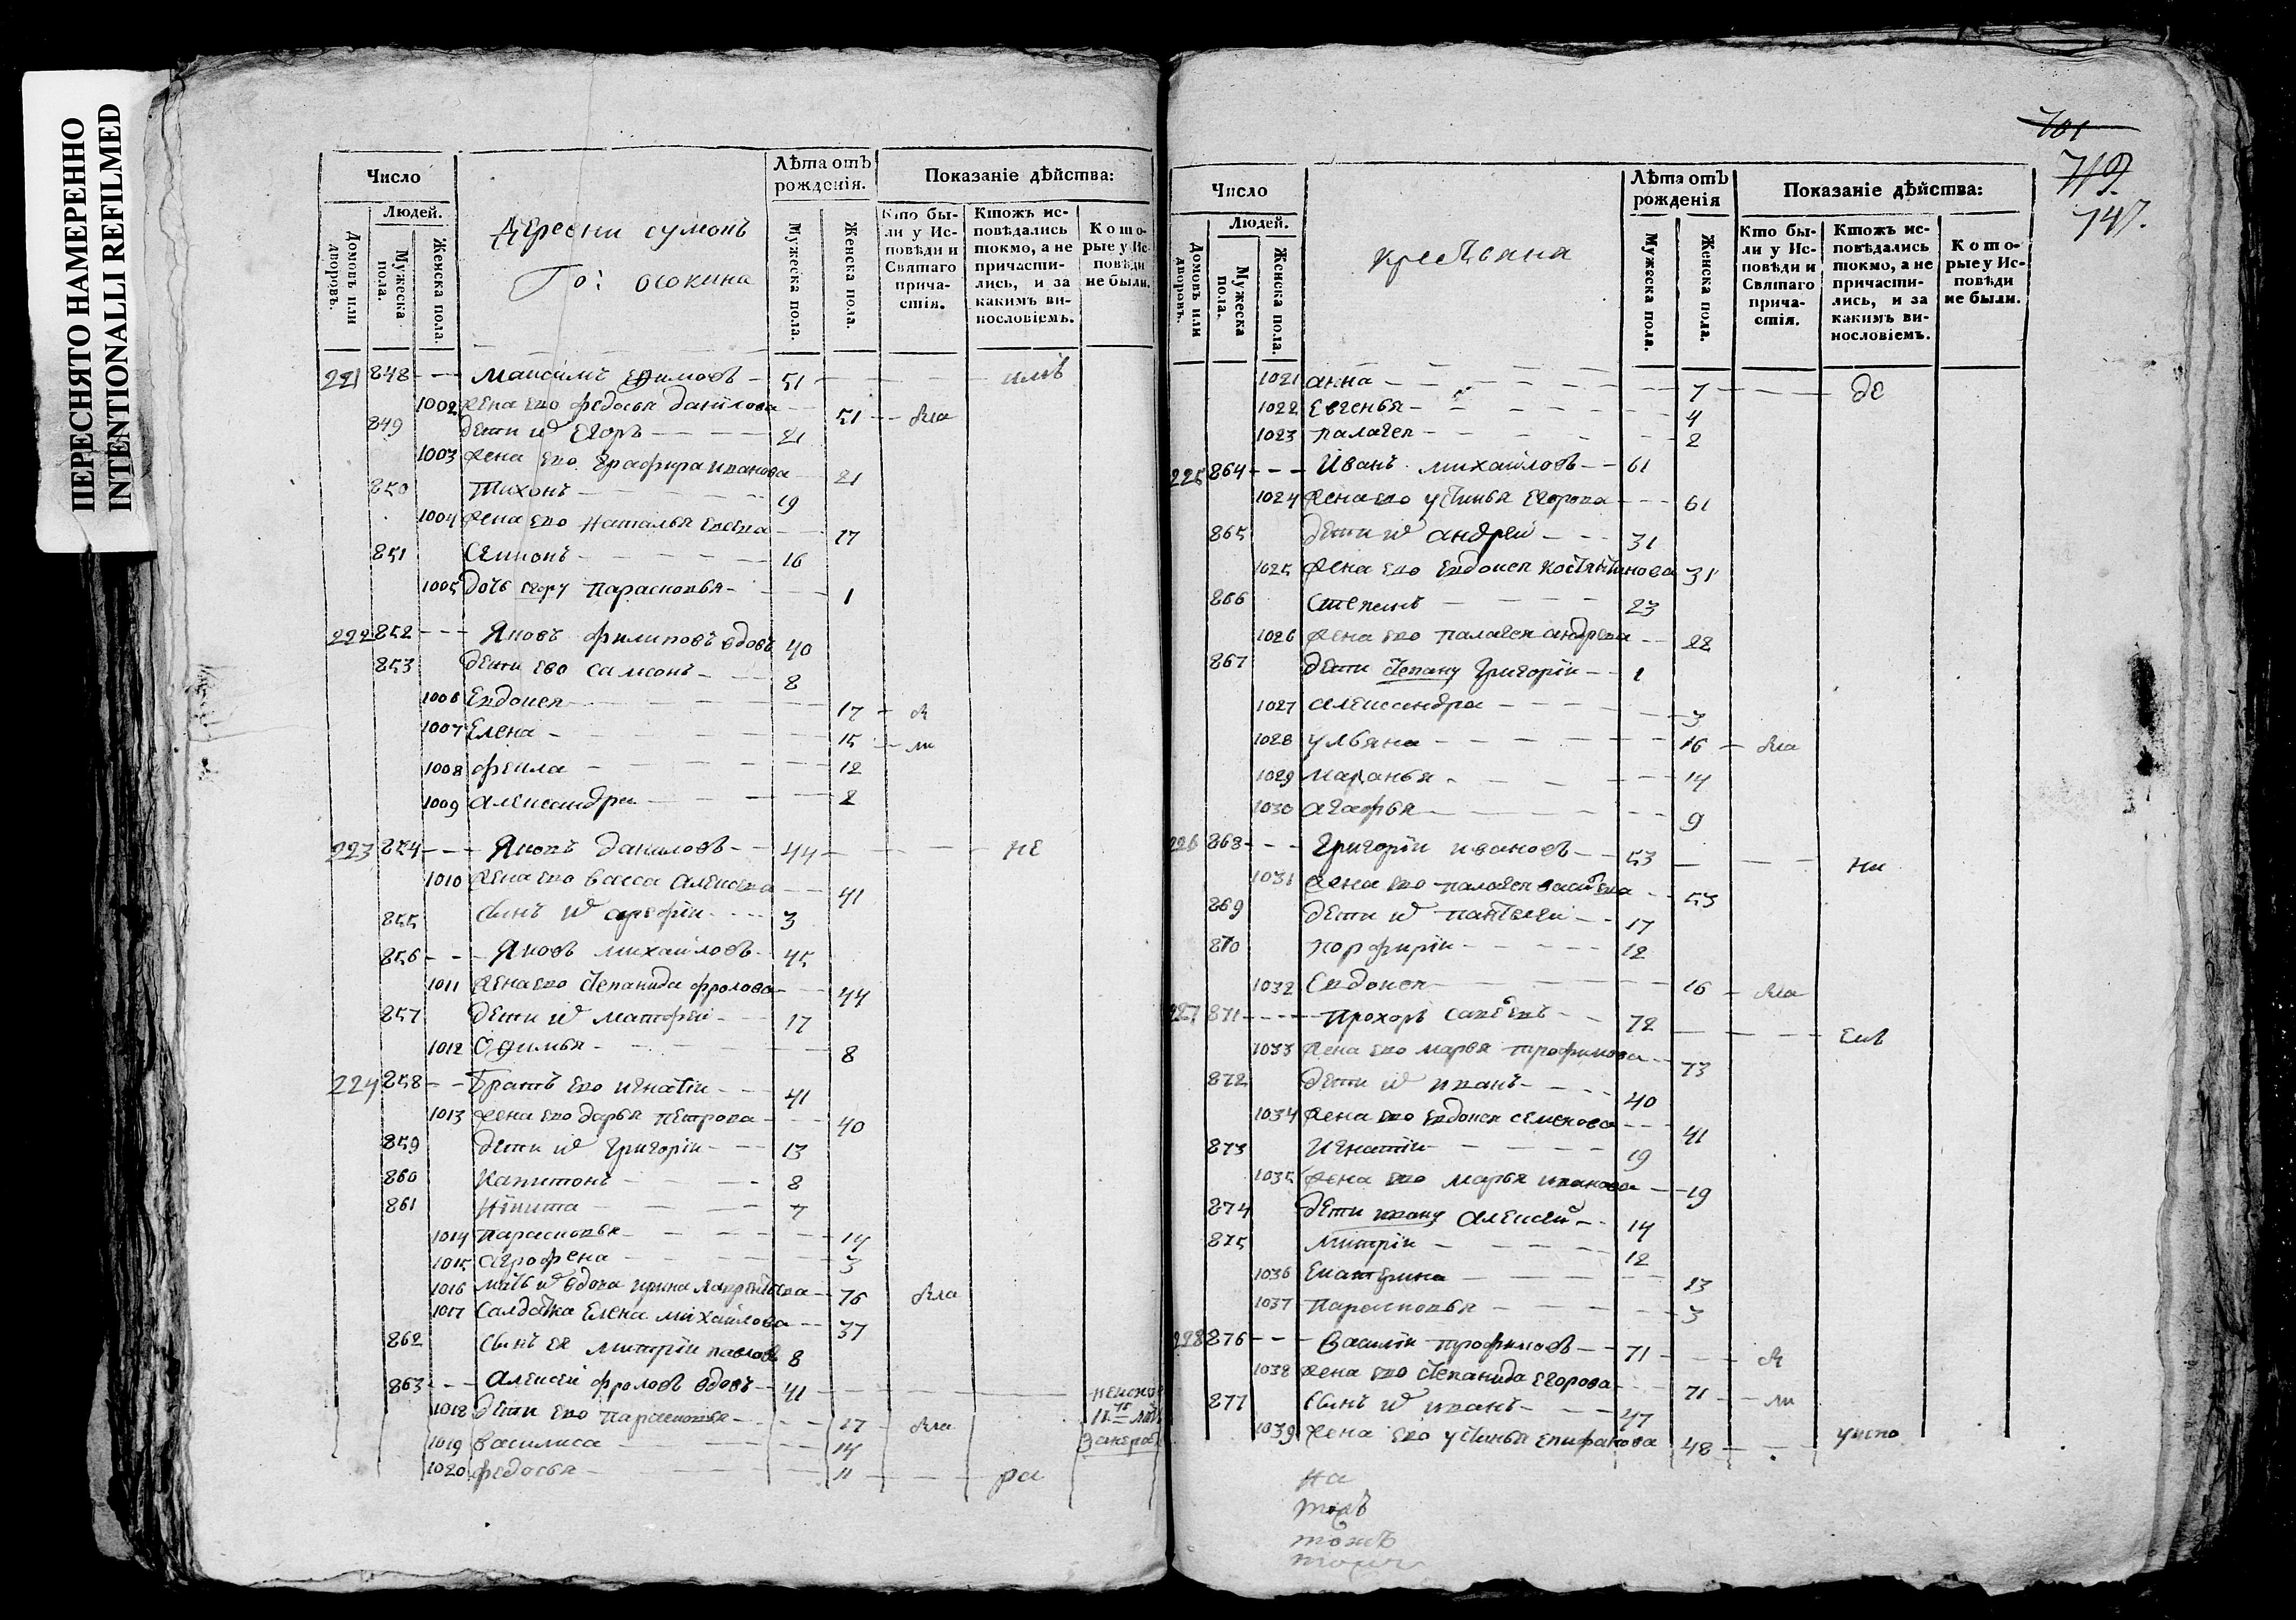 ПЕРЕСНЯТО НАМЕРЕННО
INTENTIONALLI REFILMED
Число
Людей.
Домовъ или дворовъ.
Мужеска пола.
Женска пола.
Деревни сумокъ
Го: осокина
Лѣта отъ рожденія.
Мужеска пола.
Женска пола.
Показаніе дѣйства:
Кто бы-
ли у Ис-
повѣди и
Святаго
прича-
стія.
Ктожъ ис-
повѣдались
токмо, а не
причасти-
лись, и за
какимъ ви-
нословіемъ.
Кото-
рые у Ис-
повѣди
не были.
221 848 - - - Максимъ Ефимовъ - 51
1002 жена ево федосья данилова 51 - яла
849 дети иѵ Егоръ - 21
1003 жена ево Графира иванова 21
850 Тихонъ - 19
1004 жена ево Наталья 17
851 Симионъ - 16
1005 дочь егору Парасковья - 1
222 852 - - - Яковъ филиповъ вдовъ 40
853 дети ево самсонъ - 8
1006 Евдокея - 17 - я
1007 Елена - 15 - ли
1008 фекла - 12
1009 Александра - 2
223 854 - - - Яковъ даниловъ - 44 - не
1010 жена ево васса Алексева 41
855 сынъ арефiи - 3
856 - - - Яковъ михайловъ - 45
1011 жена ево степанида фролова 44
857 дети матфеи - 17
1012 Офимья - 8
224 858 - - Братъ ево игнатiи - 41
1013 жена ево дарья петрова 40
859 дети Григорiи - 13
860 Капитонъ - 8
861 Никита - 7
1014 Парасковья - 14
1015 Агрофена - 3
1016 мать вдова ирина лаврентьева - 76 яла
1017 Салдатка Елена михайлова 37
862 сынъ ея митрiи павловъ 8
863 - - - Алексеи фроловъ вдовъ - 41
1018 дети ево парасковья - 17 - яла
1019 василиса - 14
1020 федосья - 11 - ра
701
719.
747.
Число
Людей.
Домовъ или дворовъ.
Мужеска пола.
Женска пола.
крестьяна
Лѣта отъ рожденія
Мужеска пола.
Женска пола.
Показаніе дѣйства:
Кто бы-
ли у Ис-
повѣди и
Святаго
прича-
стія.
Ктожъ ис-
повѣдались
токмо, а не
причасти-
лись, и за
какимъ ви-
нословіемъ.
Кото-
рые у Ис-
повѣди
не были.
1021 анна - 7 - де
1022 Евгенья - 4
1023 палагея - 2
225 864 - - - Иванъ михайловъ - 61
1024 жена ево устинья Егорова 61
865 дети андреи - 31
1025 жена ево Евдокея костянтинова 31
866 Степанъ - 23
1026 жена ево палагея андрева 22
867 дети степану Григорiи - 1
1027 александра - 3
1028 ульяна - 16 - яла
1029 маланья - 14
1030 агафья - 9
226 868 - - - Григорiи ивановъ - 53 - ни
1031 жена ево палагея васильева 53
869 дети пантелеи - 17
870 порфирiи - 12
1032 Евдокея - 16 - яла
227 871 - - - Прохоръ савельевъ - 72
1033 жена ево марья трофимова 73
872 дети иванъ - 40
1034 жена ево евдокея семенова 41
873 Игнатiи - 19
1035 жена ево марья иванова - 19
874 дети ивану Алексей - 14
875 митрiи - 12
1036 Екатерина - 13
1037 Парасковья - 3
228 876 - - - василiи трофимовъ - 71 - я
1038 жена ево степанида егорова 71 - ли
877 сынъ иванъ - 47
1039 жена ево устинья епифанова 48
на
томъ